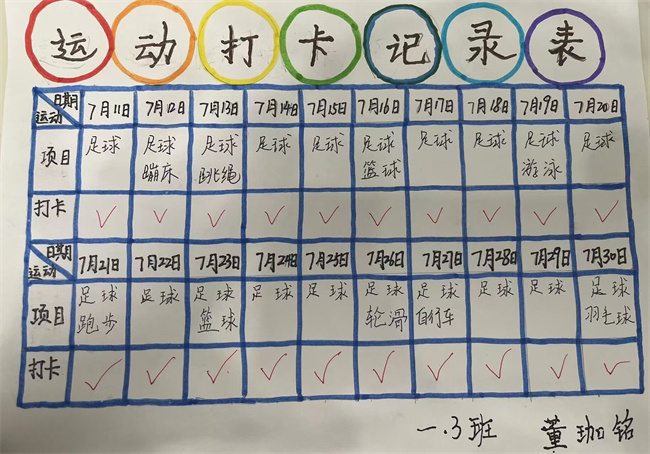 运动打卡记录表
日期 运动 7月11日 7月12日 7月13日 7月14日 7月15日 7月16日 7月17日 7月18日 7月19日 7月20日
项目 足球 足球 蹦床 足球 跳绳 足球 足球 足球 篮球 足球 足球 足球 游泳 足球
打卡 ✓ ✓ ✓ ✓ ✓ ✓ ✓ ✓ ✓ ✓
日期 运动 7月21日 7月22日 7月23日 7月24日 7月25日 7月26日 7月27日 7月28日 7月29日 7月30日
项目 足球 跑步 足球 足球 篮球 足球 足球 足球 轮滑 足球 自行车 足球 足球 足球 羽毛球
打卡 ✓ ✓ ✓ ✓ ✓ ✓ ✓ ✓ ✓ ✓
一.3班 董珈铭